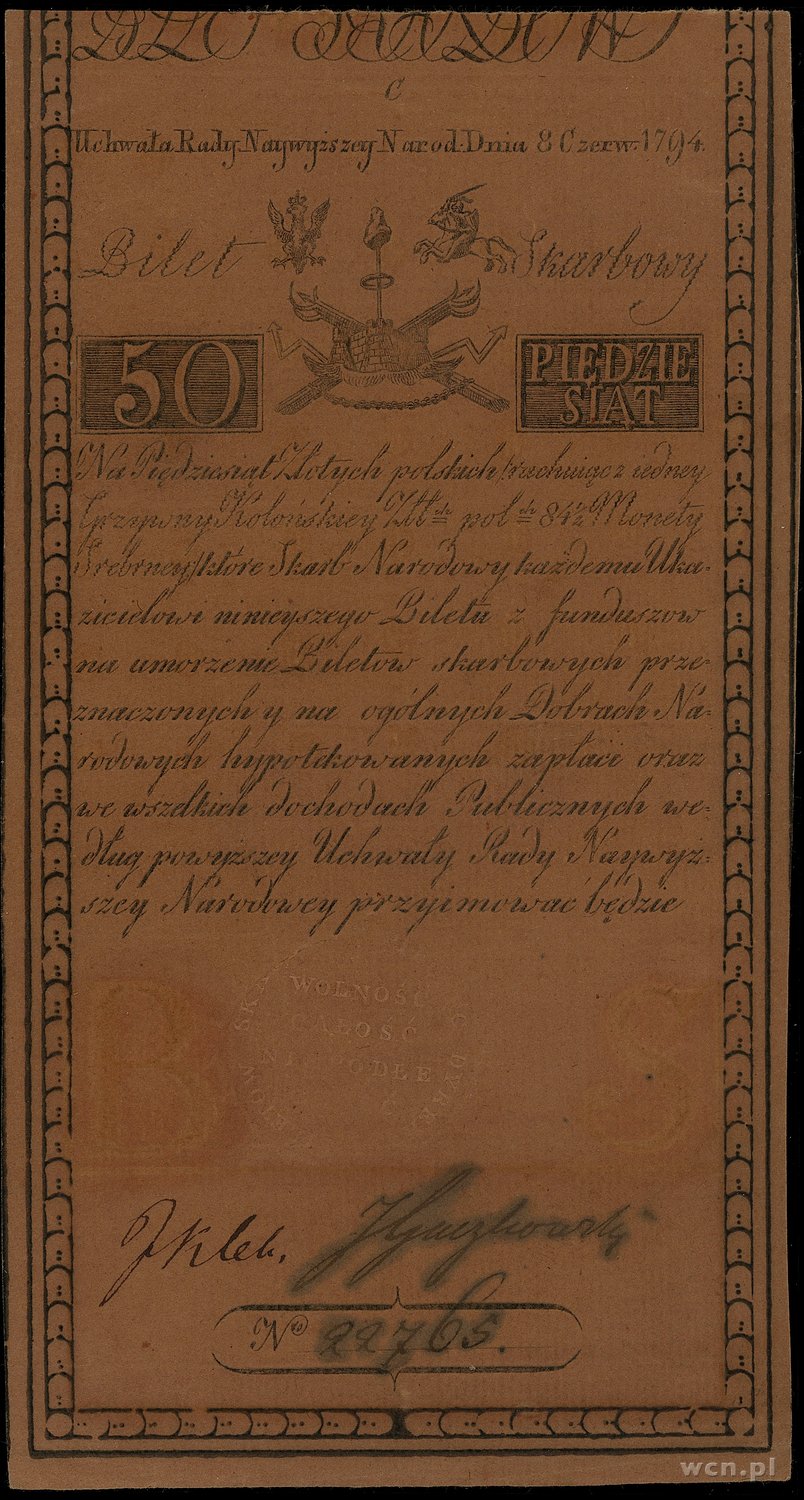 C
Uchwała Rady Naywyższey Narod. Dnia 8 Czerw. 1794.
Bilet Skarbowy
50 PIĘDZIE
SIĄT
Na Piędziesiąt Złotych polskich /rachuiąc z iedney
Grzywny Kolońskiey Złł:ch pol:ch 84½ Monety
Srebrney/ które Skarb Narodowy każdemu Uka-
zicielowi ninieyszego Biletu z funduszow
na umorzenie Biletow skarbowych prze-
znaczonych y na ogólnych Dobrach Na-
rodowych hypotekowanych zapłaci oraz
we wszelkich dochodach Publicznych we-
dług powyższey Uchwały Rady Naywyż-
szey Narodowey przyimować będzie
WOLNOŚĆ
CAŁOŚĆ
B S
No 22765.
wcn.pl